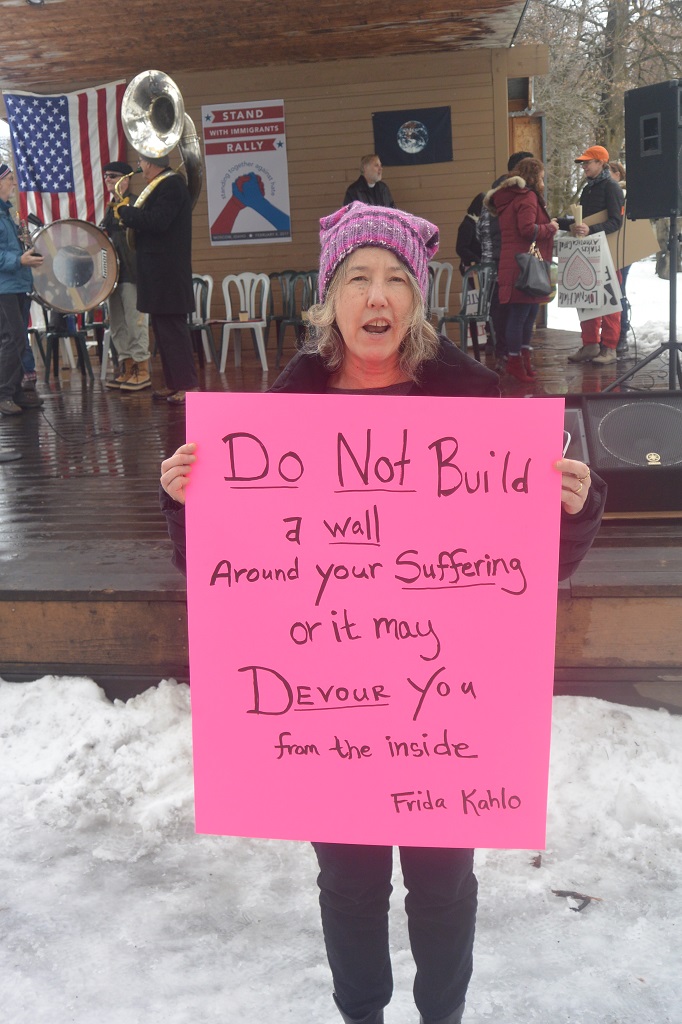 STAND
WITH IMMIGRANTS
RALLY
standing together against hate
Do Not Build
a wall
Around your Suffering
or it may
DEVOUR You
from the inside
Frida Kahlo